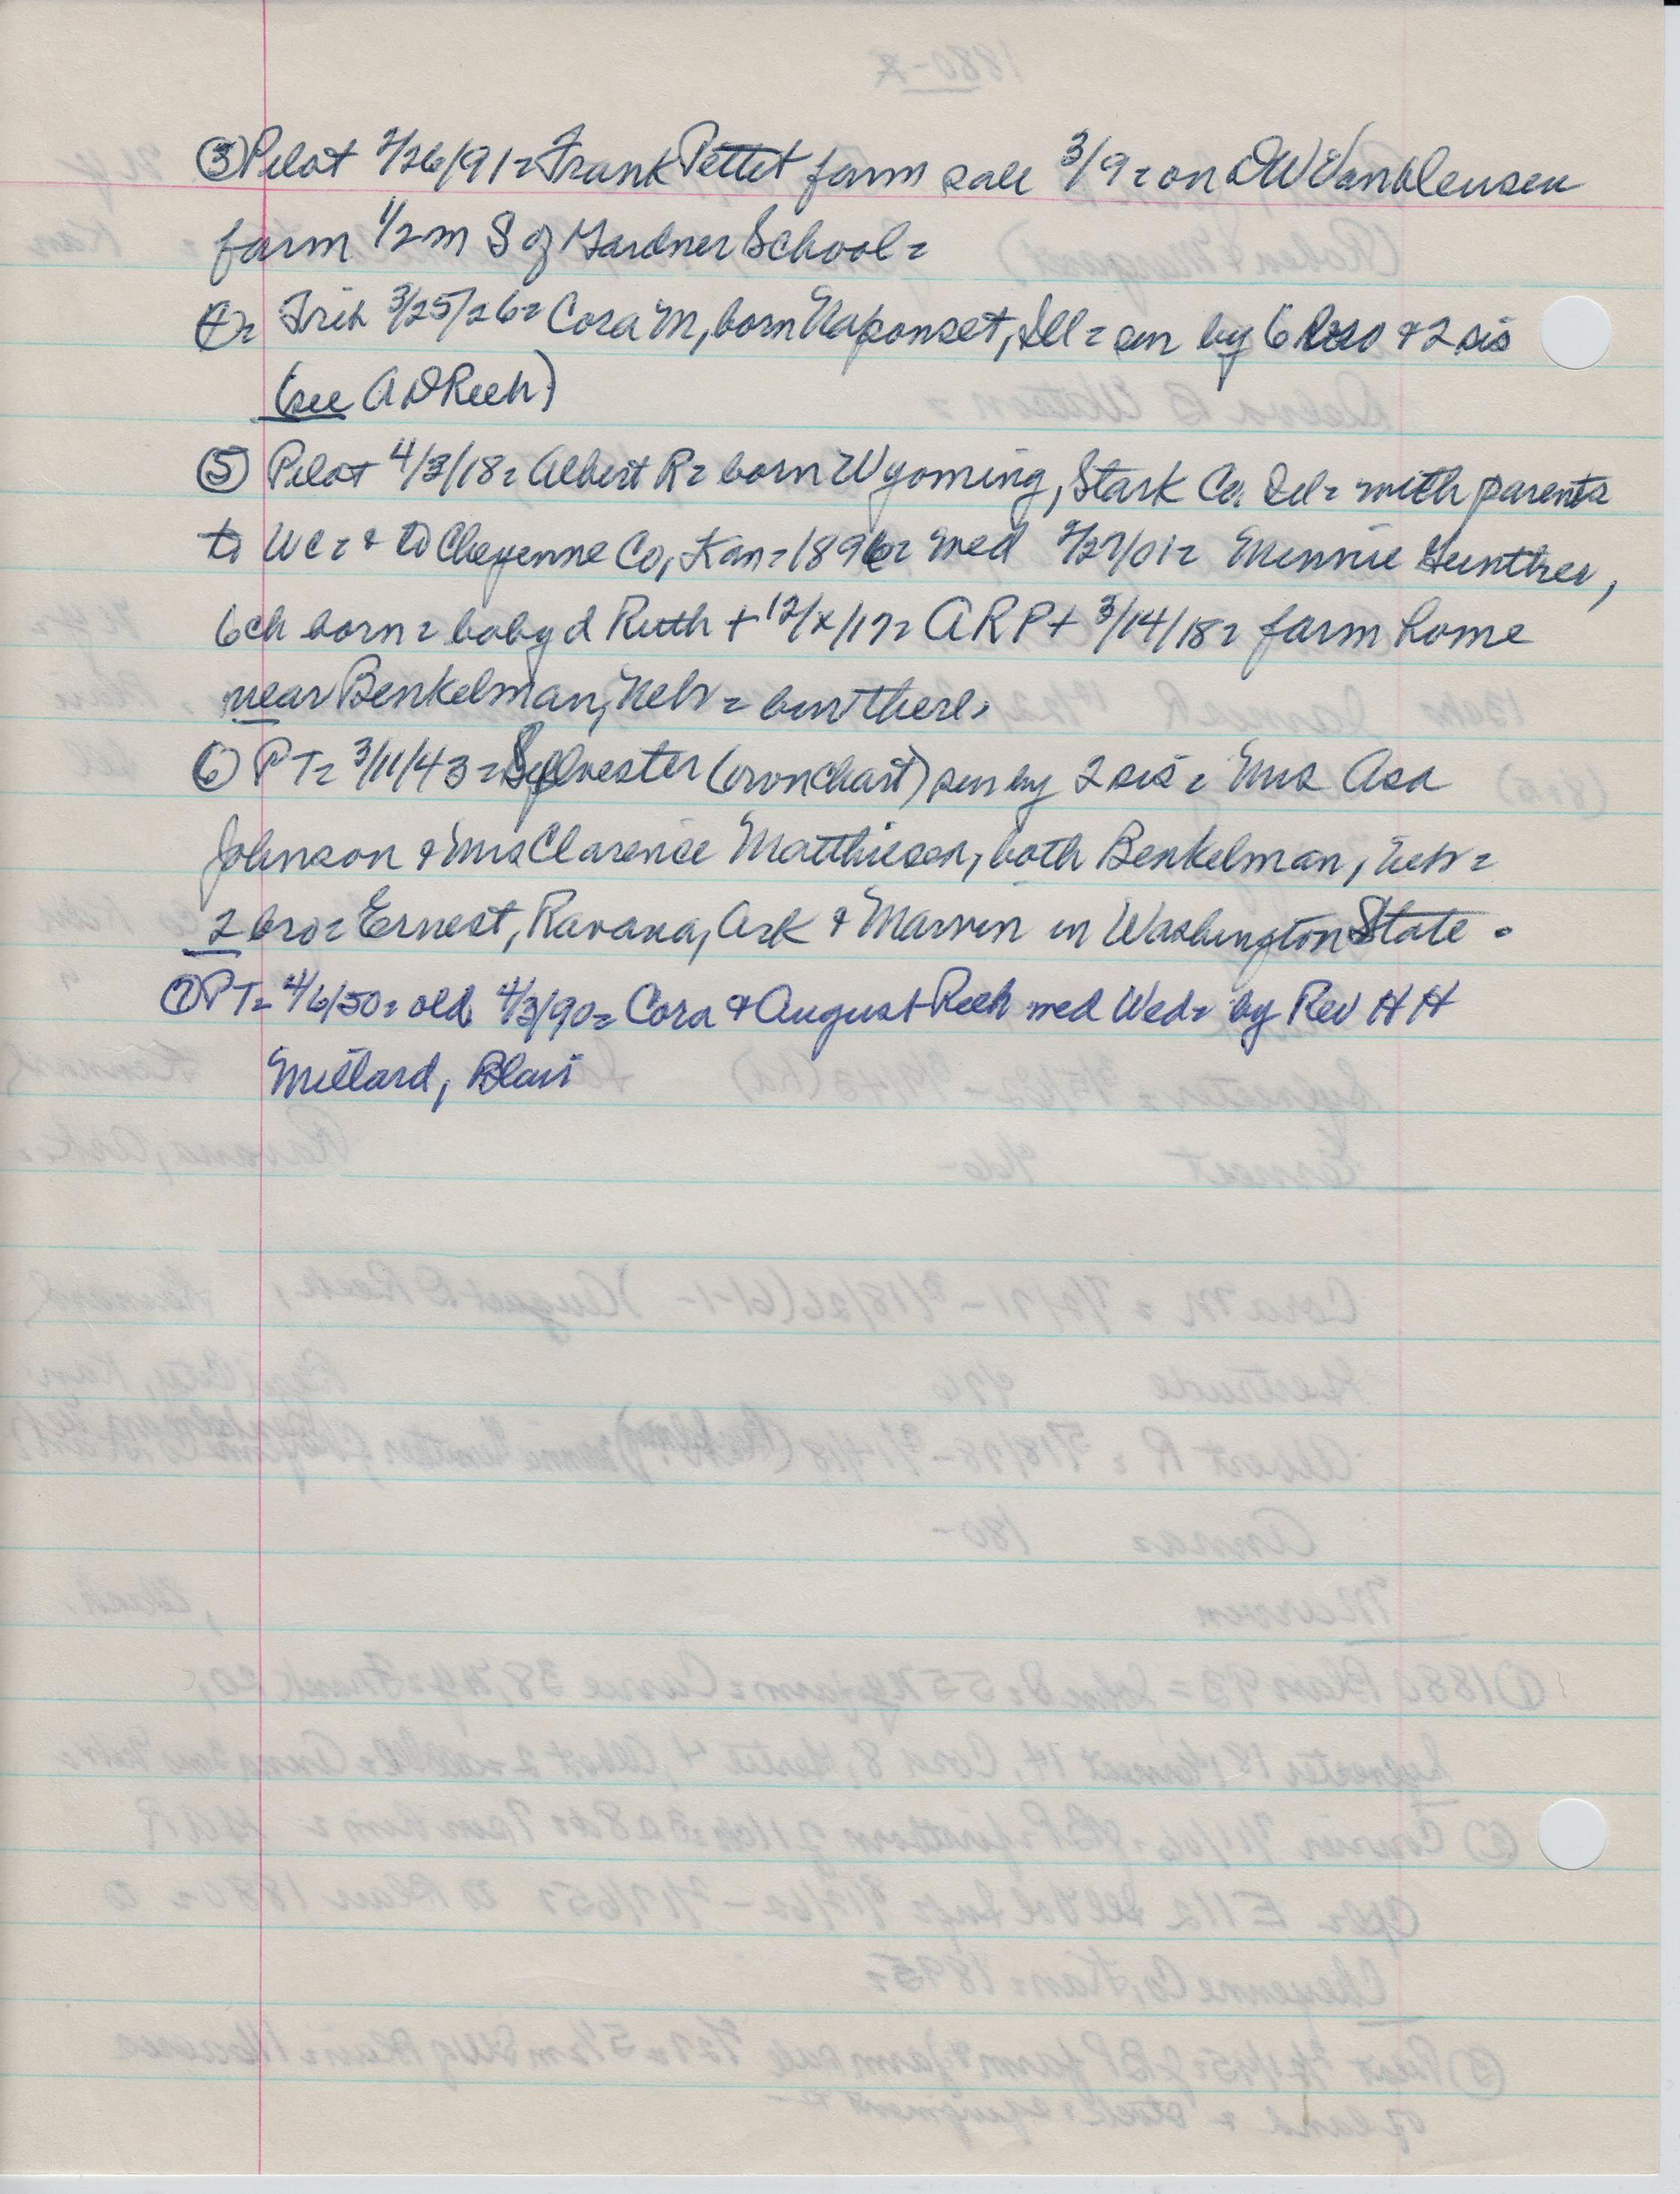 ③ Pilot 2/26/91= Frank Pettet farm sale 3/9= on DW Vanbleusen
farm 1/2 m S of Gardner School=
④= Trib 3/25/26= Cora M, born Naponset, Ill= sur by 6 bro & 2 sis
(see A D Reeh)
⑤ Pilot 4/3/18= Albert R= born Wyoming, Stark Co. Ill= with parents
to WC= & to Cheyenne Co, Kan= 1896= med 2/27/01= Minnie Gunther,
6 ch born= baby d Ruth + 12/x/17= ARP + 3/14/18= farm home
near Benkelman, Nebr= bur there.
⑥ PT= 3/11/43= Sylvester (on chart) sur by 2 sis= Mrs Asa
Johnson & Mrs Clarence Matthiesen, both Benkelman, Nebr=
2 bro= Ernest, Ravana, Ark & Marvin in Washington State.
⑦ PT= 4/6/50= old 4/3/90= Cora & August Reeh med Wed= by Rev H H
Millard, Blair